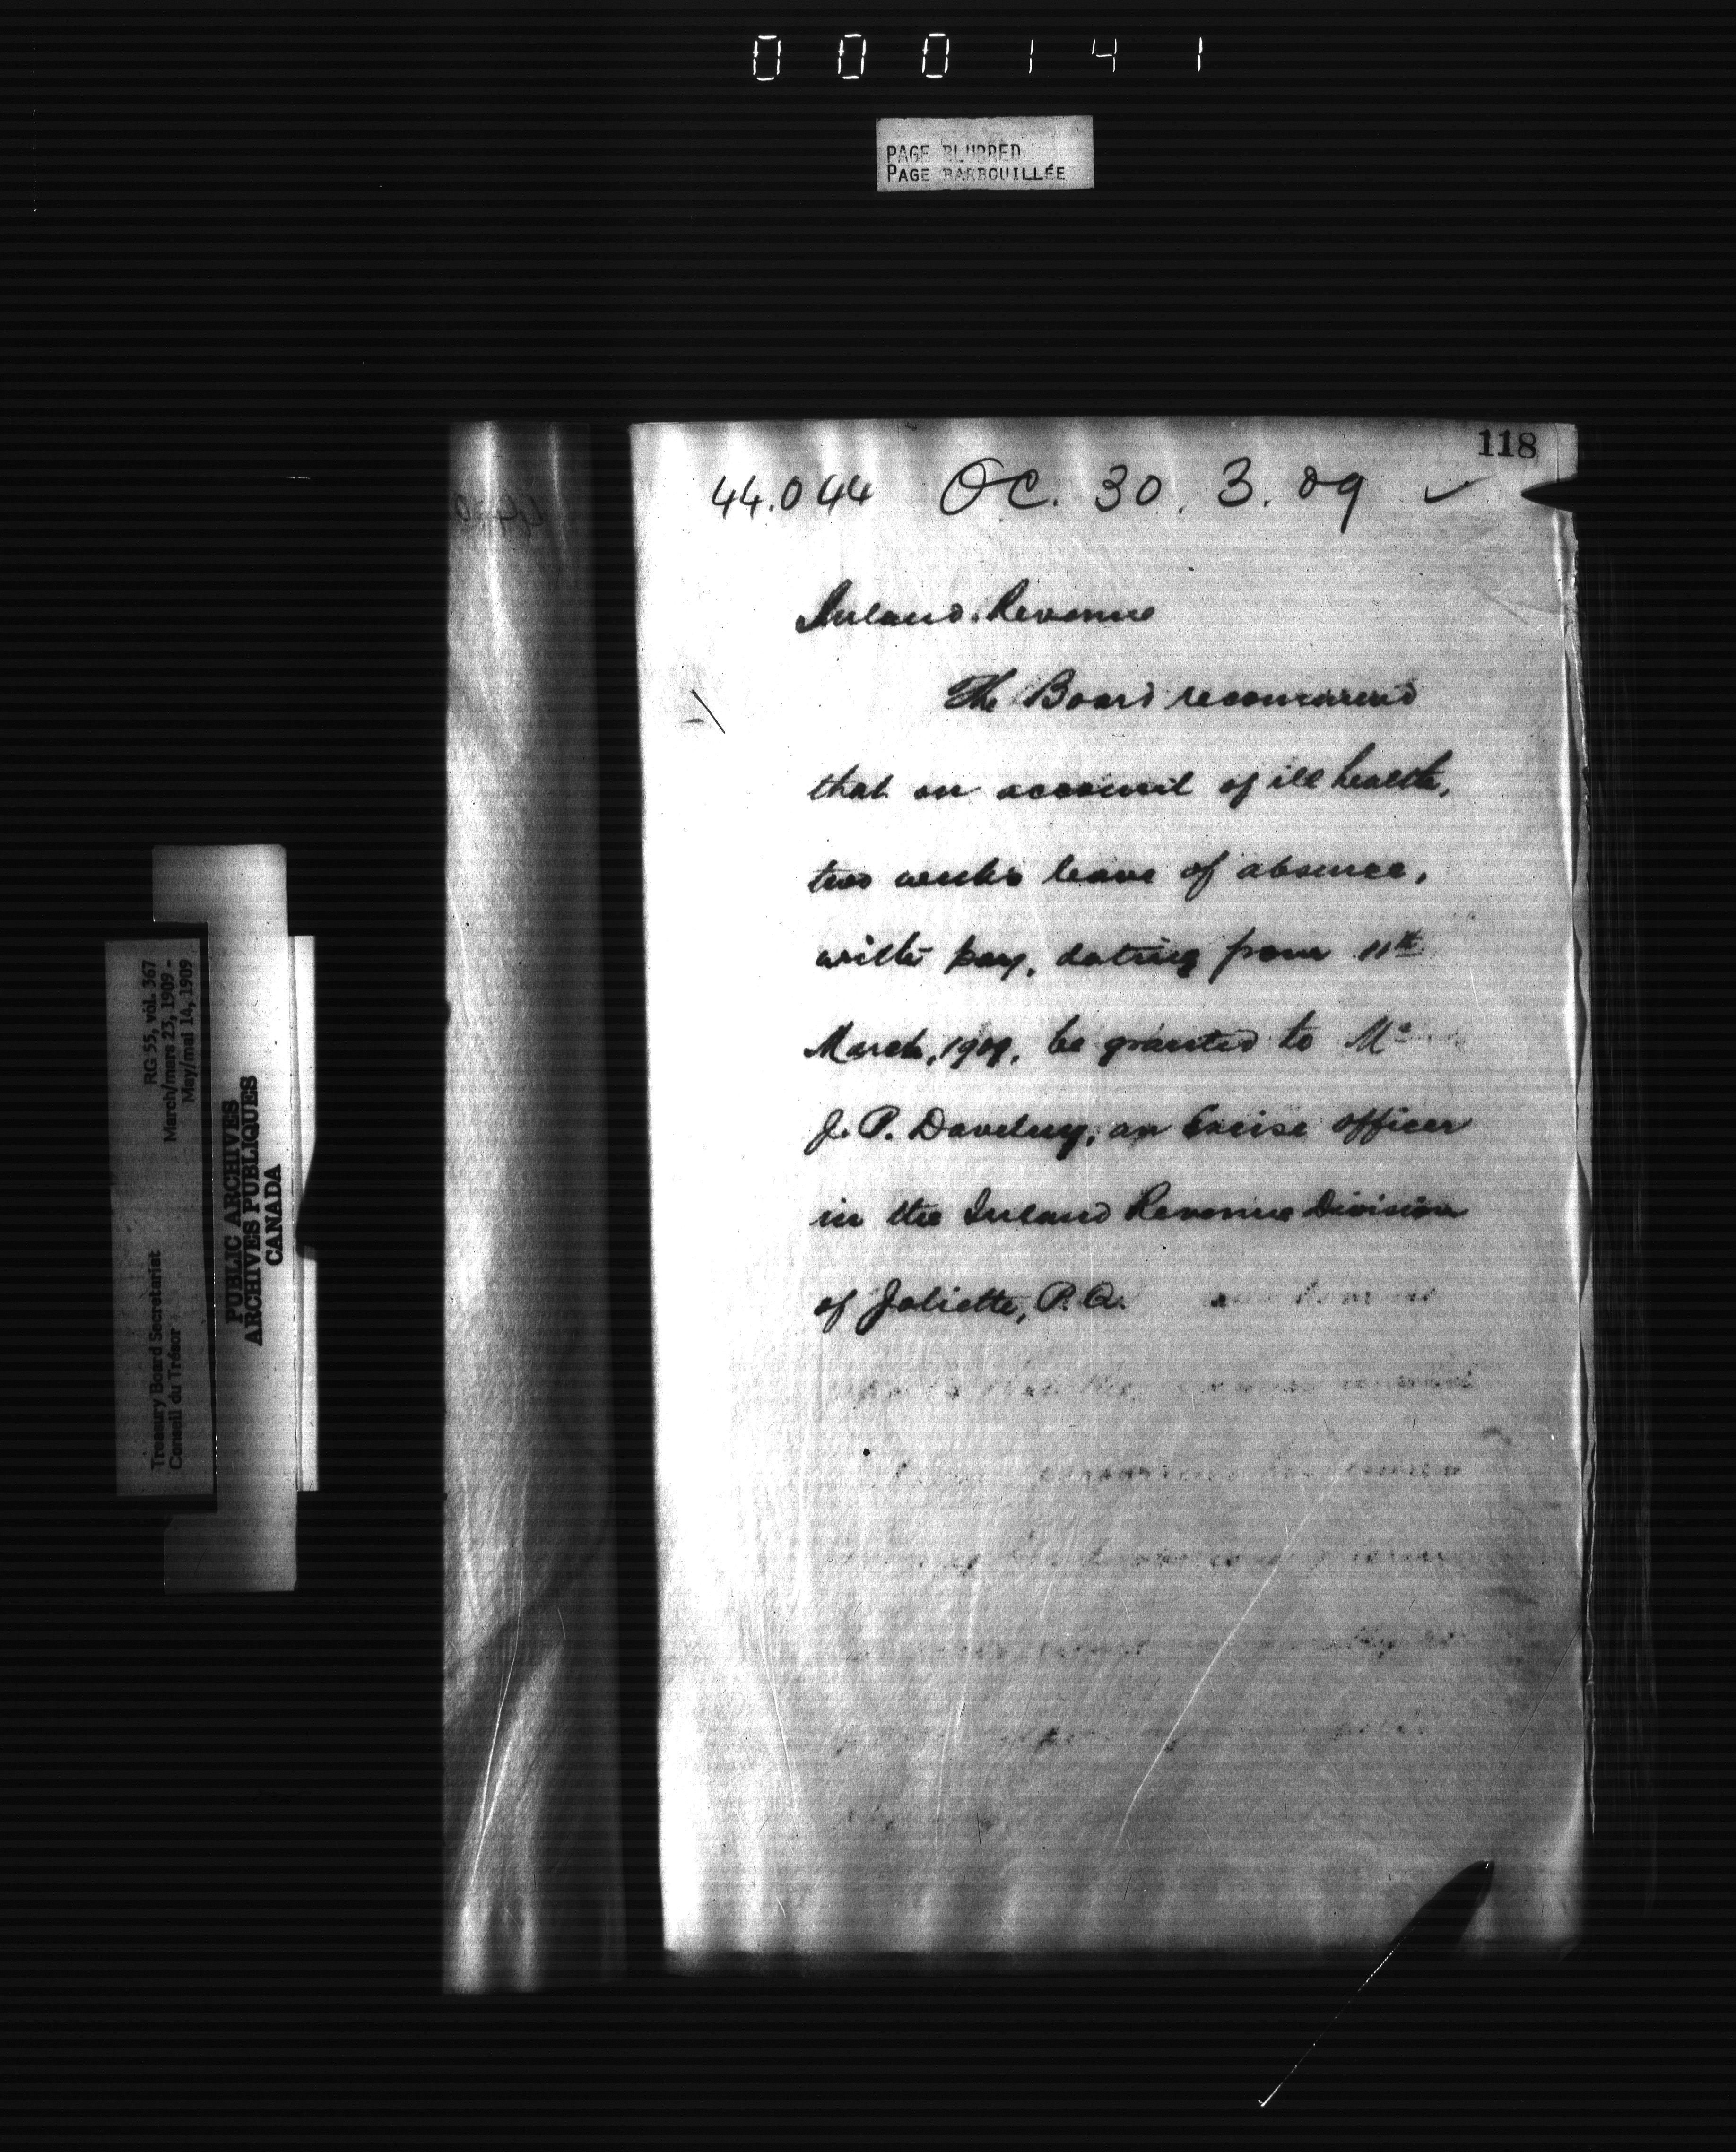 000141
PAGE BLURRED
PAGE BARBOUILLÉE
118
44.044 OC. 30. 3. 09 ✓
Inland Revenue
The Board recommend
that on account of ill health,
two weeks leave of absence,
with pay, dating from 11th
March, 1909, be granted to Mr
J. P. Daveluy, an Excise officer
in the Inland Revenue Division
of Joliette, P.Q.
RG 55, vol. 367
March/mars 23, 1909 -
May/mai 14, 1909
Treasury Board Secretariat
Conseil du Trésor
PUBLIC ARCHIVES
ARCHIVES PUBLIQUES
CANADA